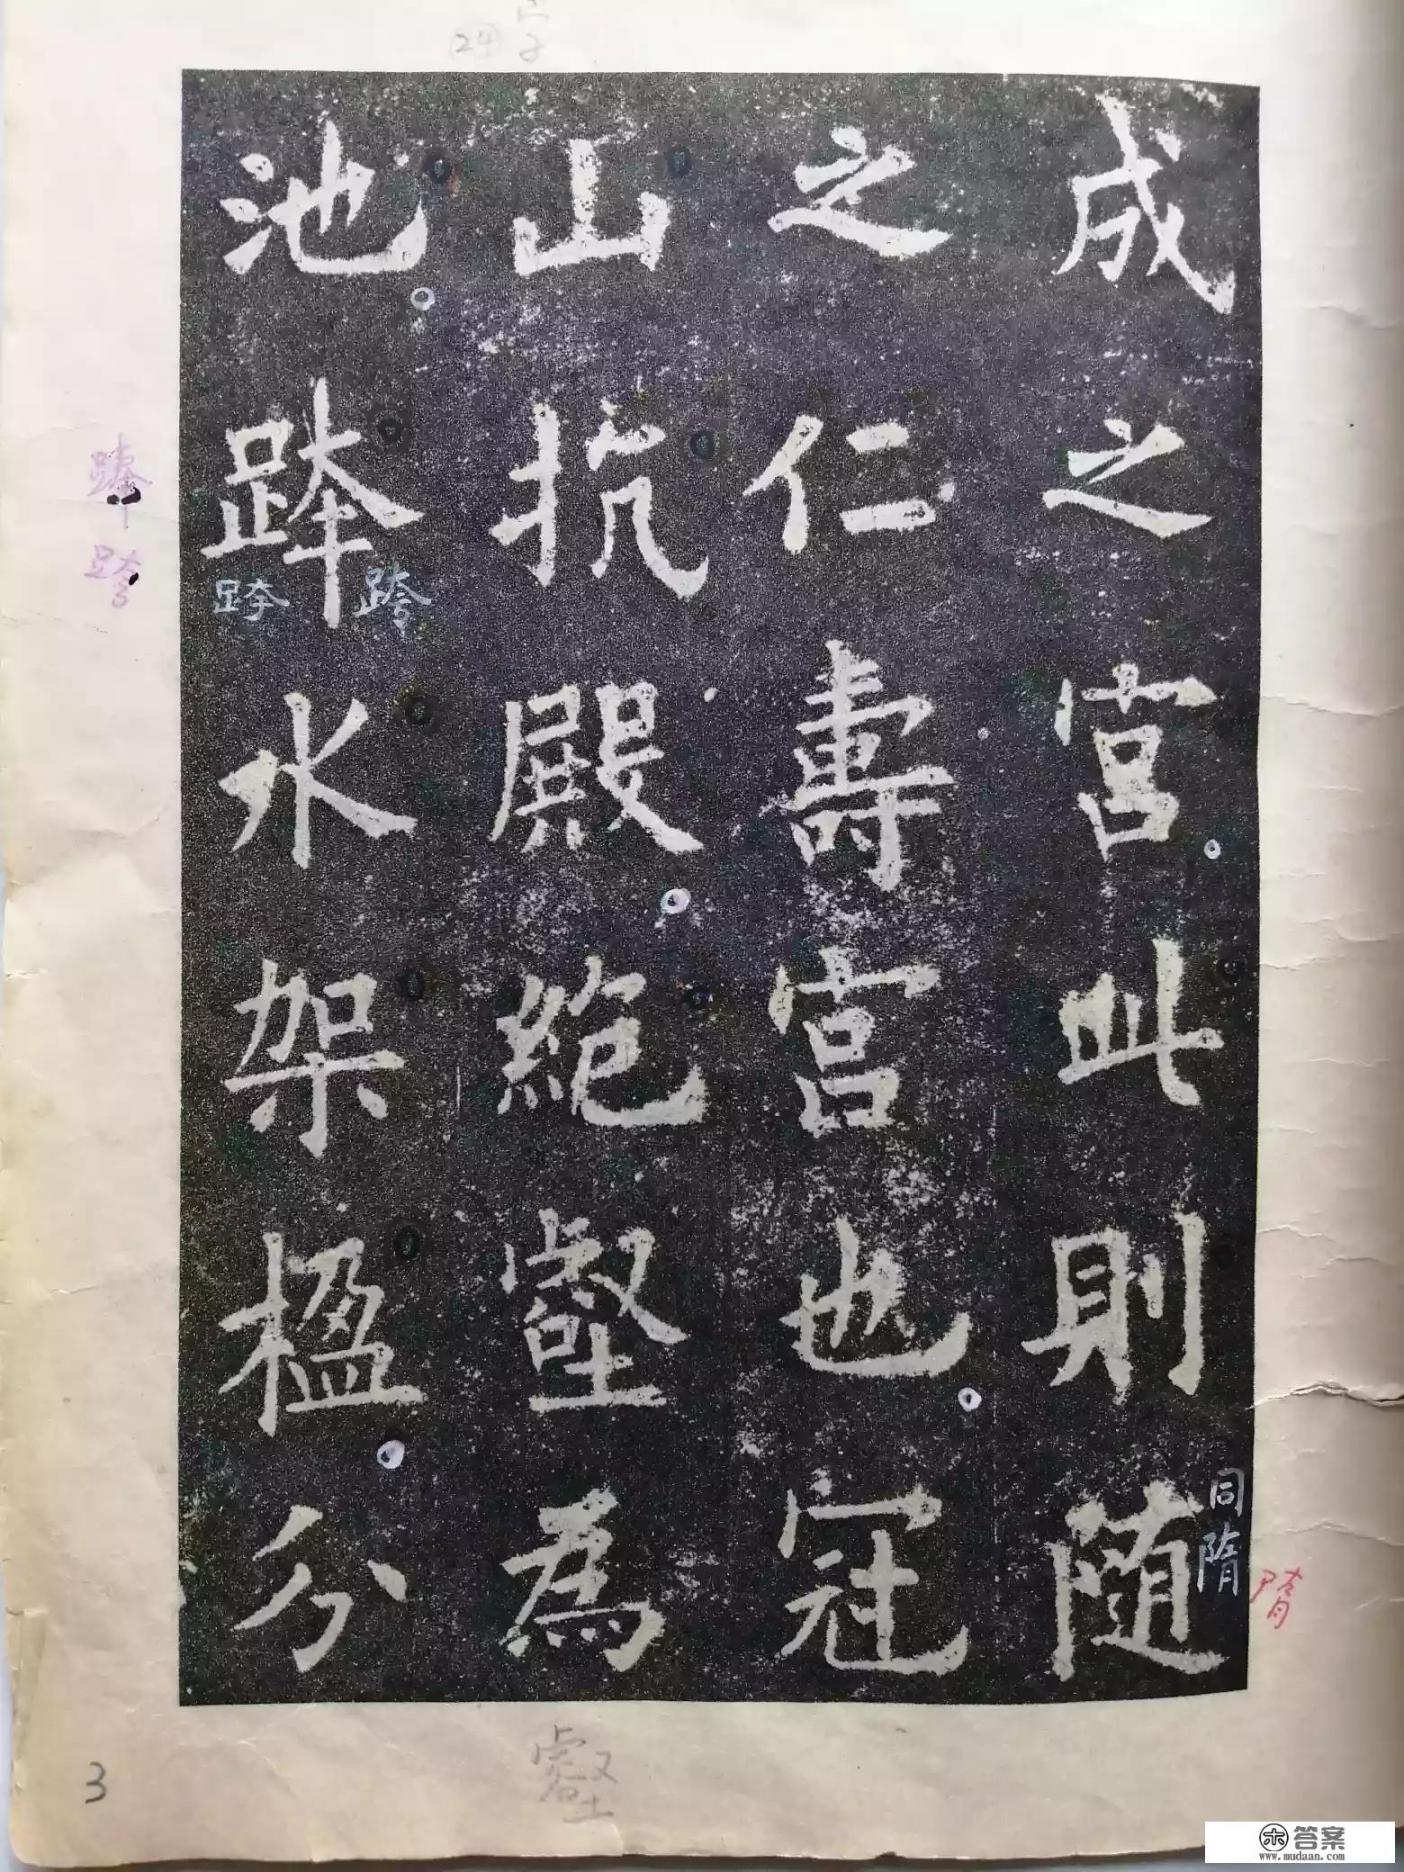 24 字
成之宫此則随
之仁壽宫也冠
山抗殿絶壑為
池跨水架楹分
同隋
隋
跨 跨
跨
壑
3
答案
www.mudaan.com